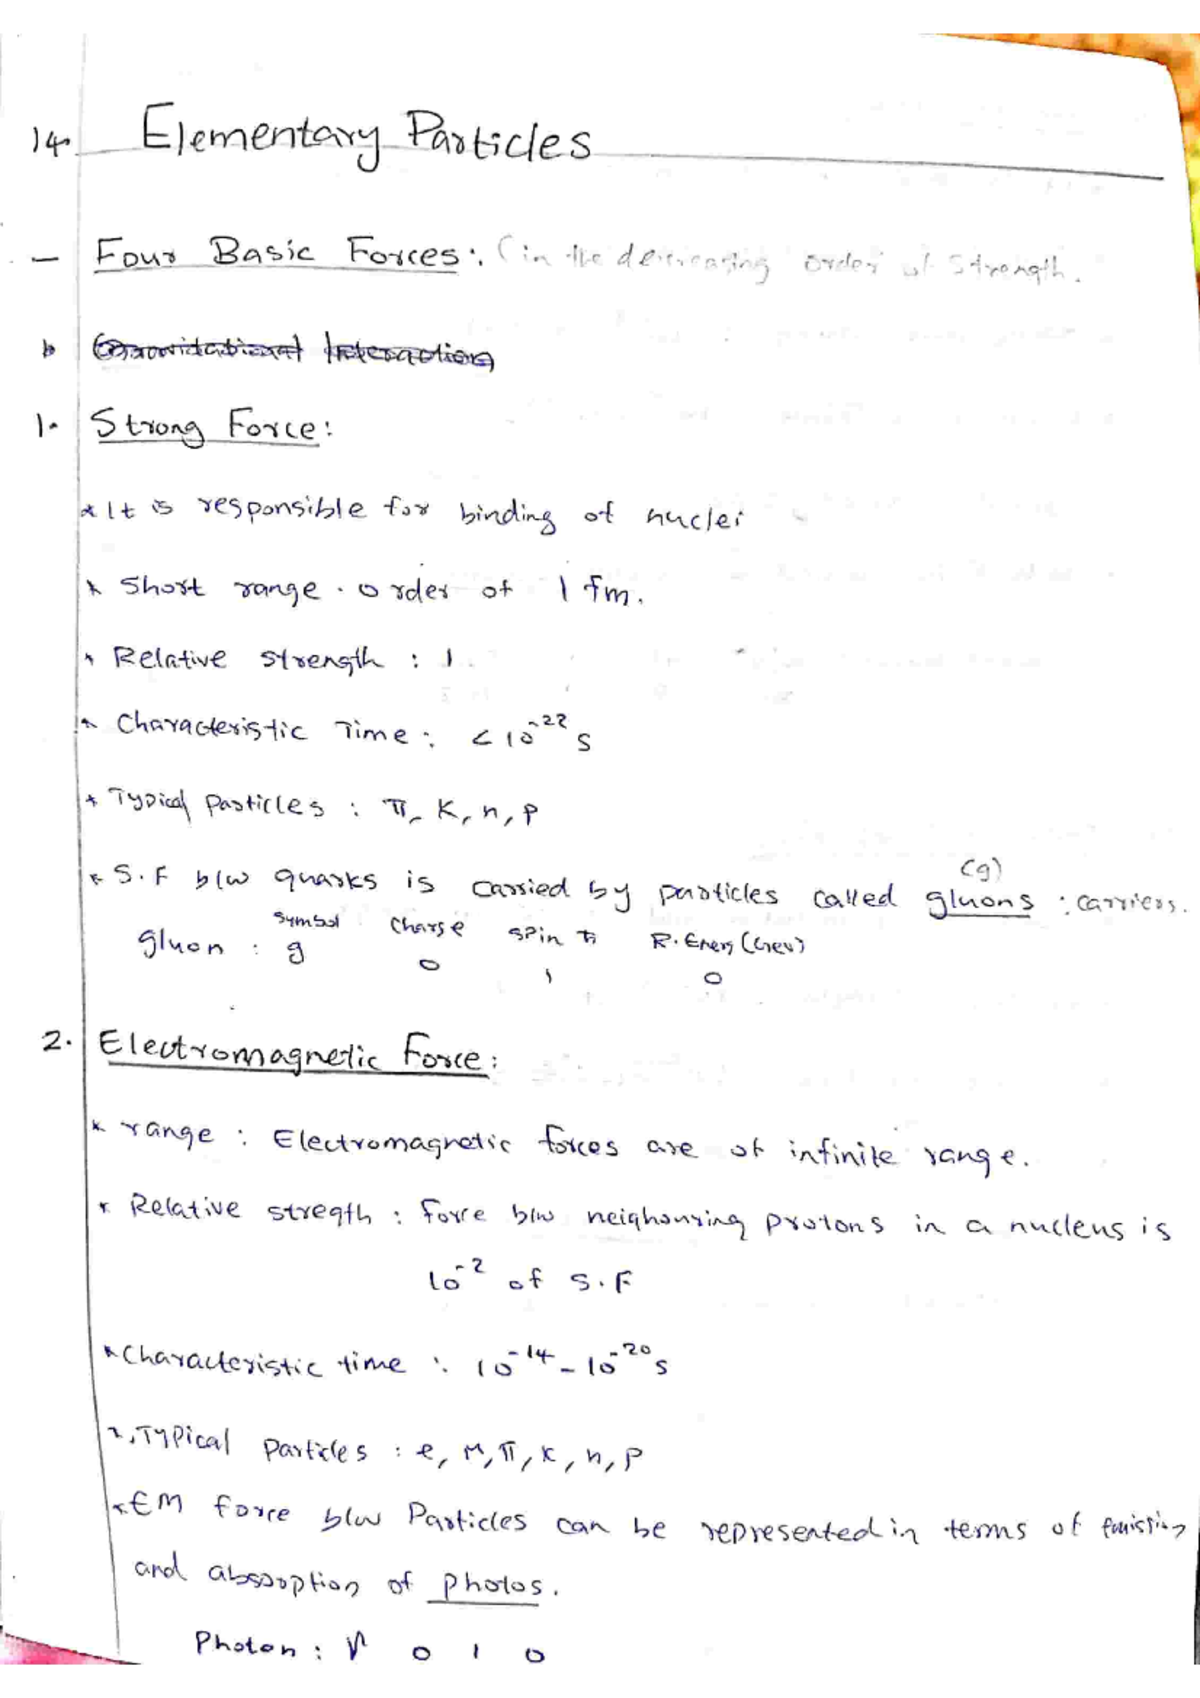 14. Elementary Particles
- Four Basic Forces: (in the decreasing order of strength.
Gravitational Interaction
1. Strong Force:
* It is responsible for binding of nuclei
* Short range. order of 1 fm.
* Relative strength : 1
* Characteristic Time: < 10⁻²² s
* Typical Particles : π, K, n, p
(g)
* S.F b/w quarks is carried by particles called gluons : carriers.
symbol charge spin ħ R.Energ (Gev)
gluon : g 0 1 0
2. Electromagnetic Force:
* range : Electromagnetic forces are of infinite range.
* Relative stregth : force b/w neighouring protons in a nucleus is
10⁻² of S.F
* Characteristic time : 10⁻¹⁴ - 10⁻²⁰ s
Typical Particles : e, μ, π, K, n, p
* EM force b/w Particles can be represented in terms of
and absorption of photos.
Photon : γ 0 1 0